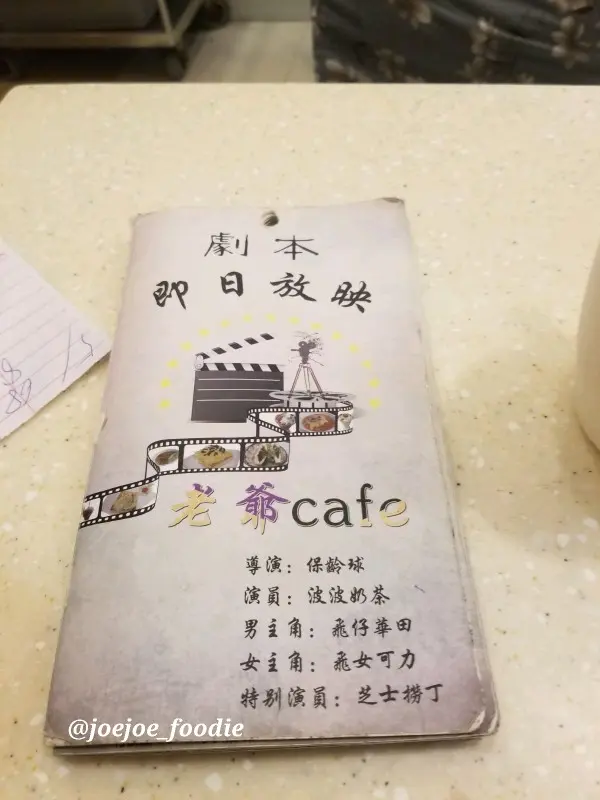 劇本
即日放映
老爺cafe
導演：保齡球
演員：波波奶茶
男主角：飛仔華田
女主角：飛女可力
特別演員：芝士撈丁
@joejoe_foodie